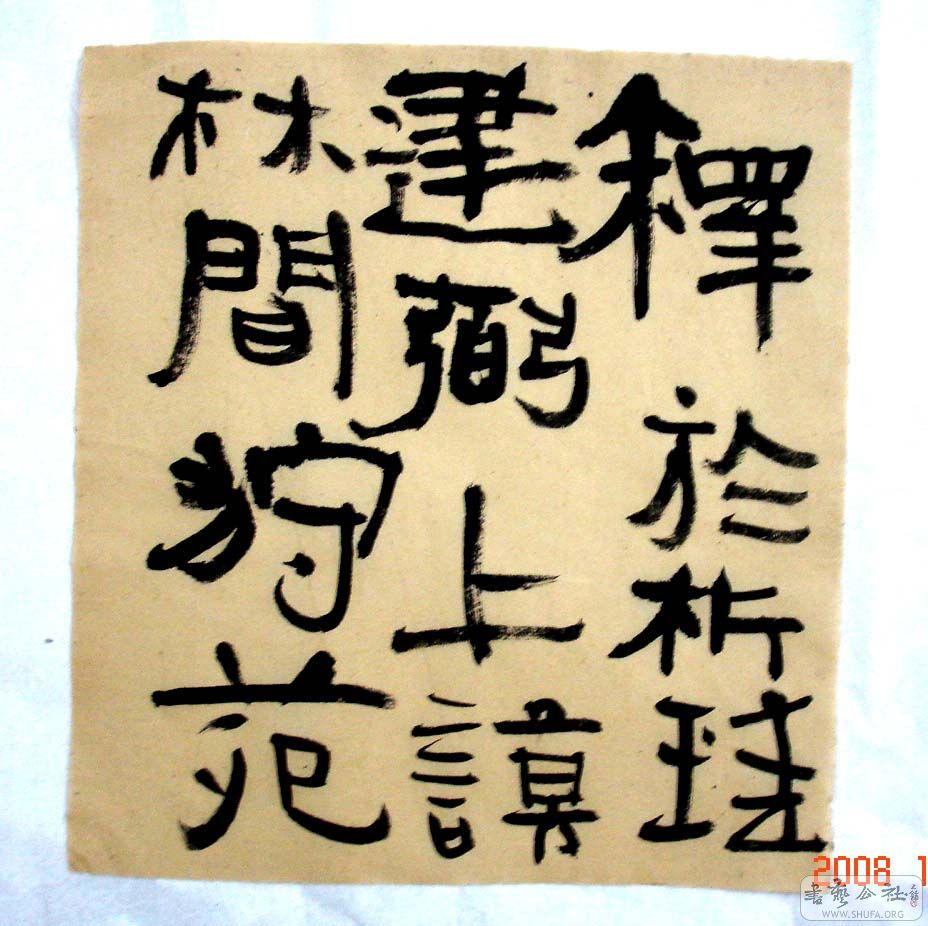 釋於析珪
建弼上謨
林間狩苑
2008 1
書藝公社
WWW.SHUFA.ORG